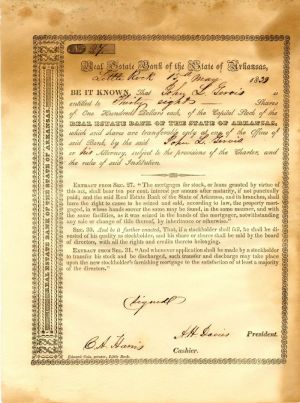 No 27
Real Estate Bank of the State of Arkansas,
Little Rock 15th May 1839
BE IT KNOWN That John L. Jervis is
entitled to Thirty eight — Shares
of One Hundred Dollars each, of the Capital Stock of the
REAL ESTATE BANK OF THE STATE OF ARKANSAS,
which said shares are transferable only at one of the Offices of
said Bank, by the said John L. Jervis
or his Attorney, subject to the provisions of the Charter, and
the rules of said Institution.
EXTRACT FROM SEC. 27. "The mortgages for stock, or loans granted by virtue of
this act, shall bear ten per cent. interest per annum after maturity, if not punctually
paid; and the said Real Estate Bank of the State of Arkansas, and its branches, shall
have the right to cause to be seized and sold, according to law, the property mort-
gaged, in whose hands soever the same may be found, in the same manner and with
the same facilities, as it was seized in the hands of the mortgager, notwithstanding
any sale or change of title thereof, by inheritance or otherwise."
SEC. 30. And be it further enacted, That, if a stockholder shall fail, he shall be di-
vested of his quality as stockholder, and his share or shares shall be sold by the board
of directors, with all the rights and credits thereto belonging.
EXTRACT FROM SEC. 31. "And whenever application shall be made by a stockholder
to transfer his stock and be discharged, such transfer and discharge may take place
upon the new stockholder's furnishing mortgage to the satisfaction of at least a majority
of the directors."
(Signed)
A H Davies President.
C. A. Harris Cashier.
Edward Cole, printer, Little Rock.